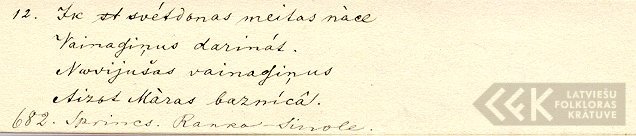 12. Ik svētdonas meitas nàce
Vainagiņus darināt.
Novijušas vainagiņus
Aizst Màras baznícâ!.
682. Sprincs. Ranka Sinole.
LATVIEŠU
FOLKLORAS
KRATUVE